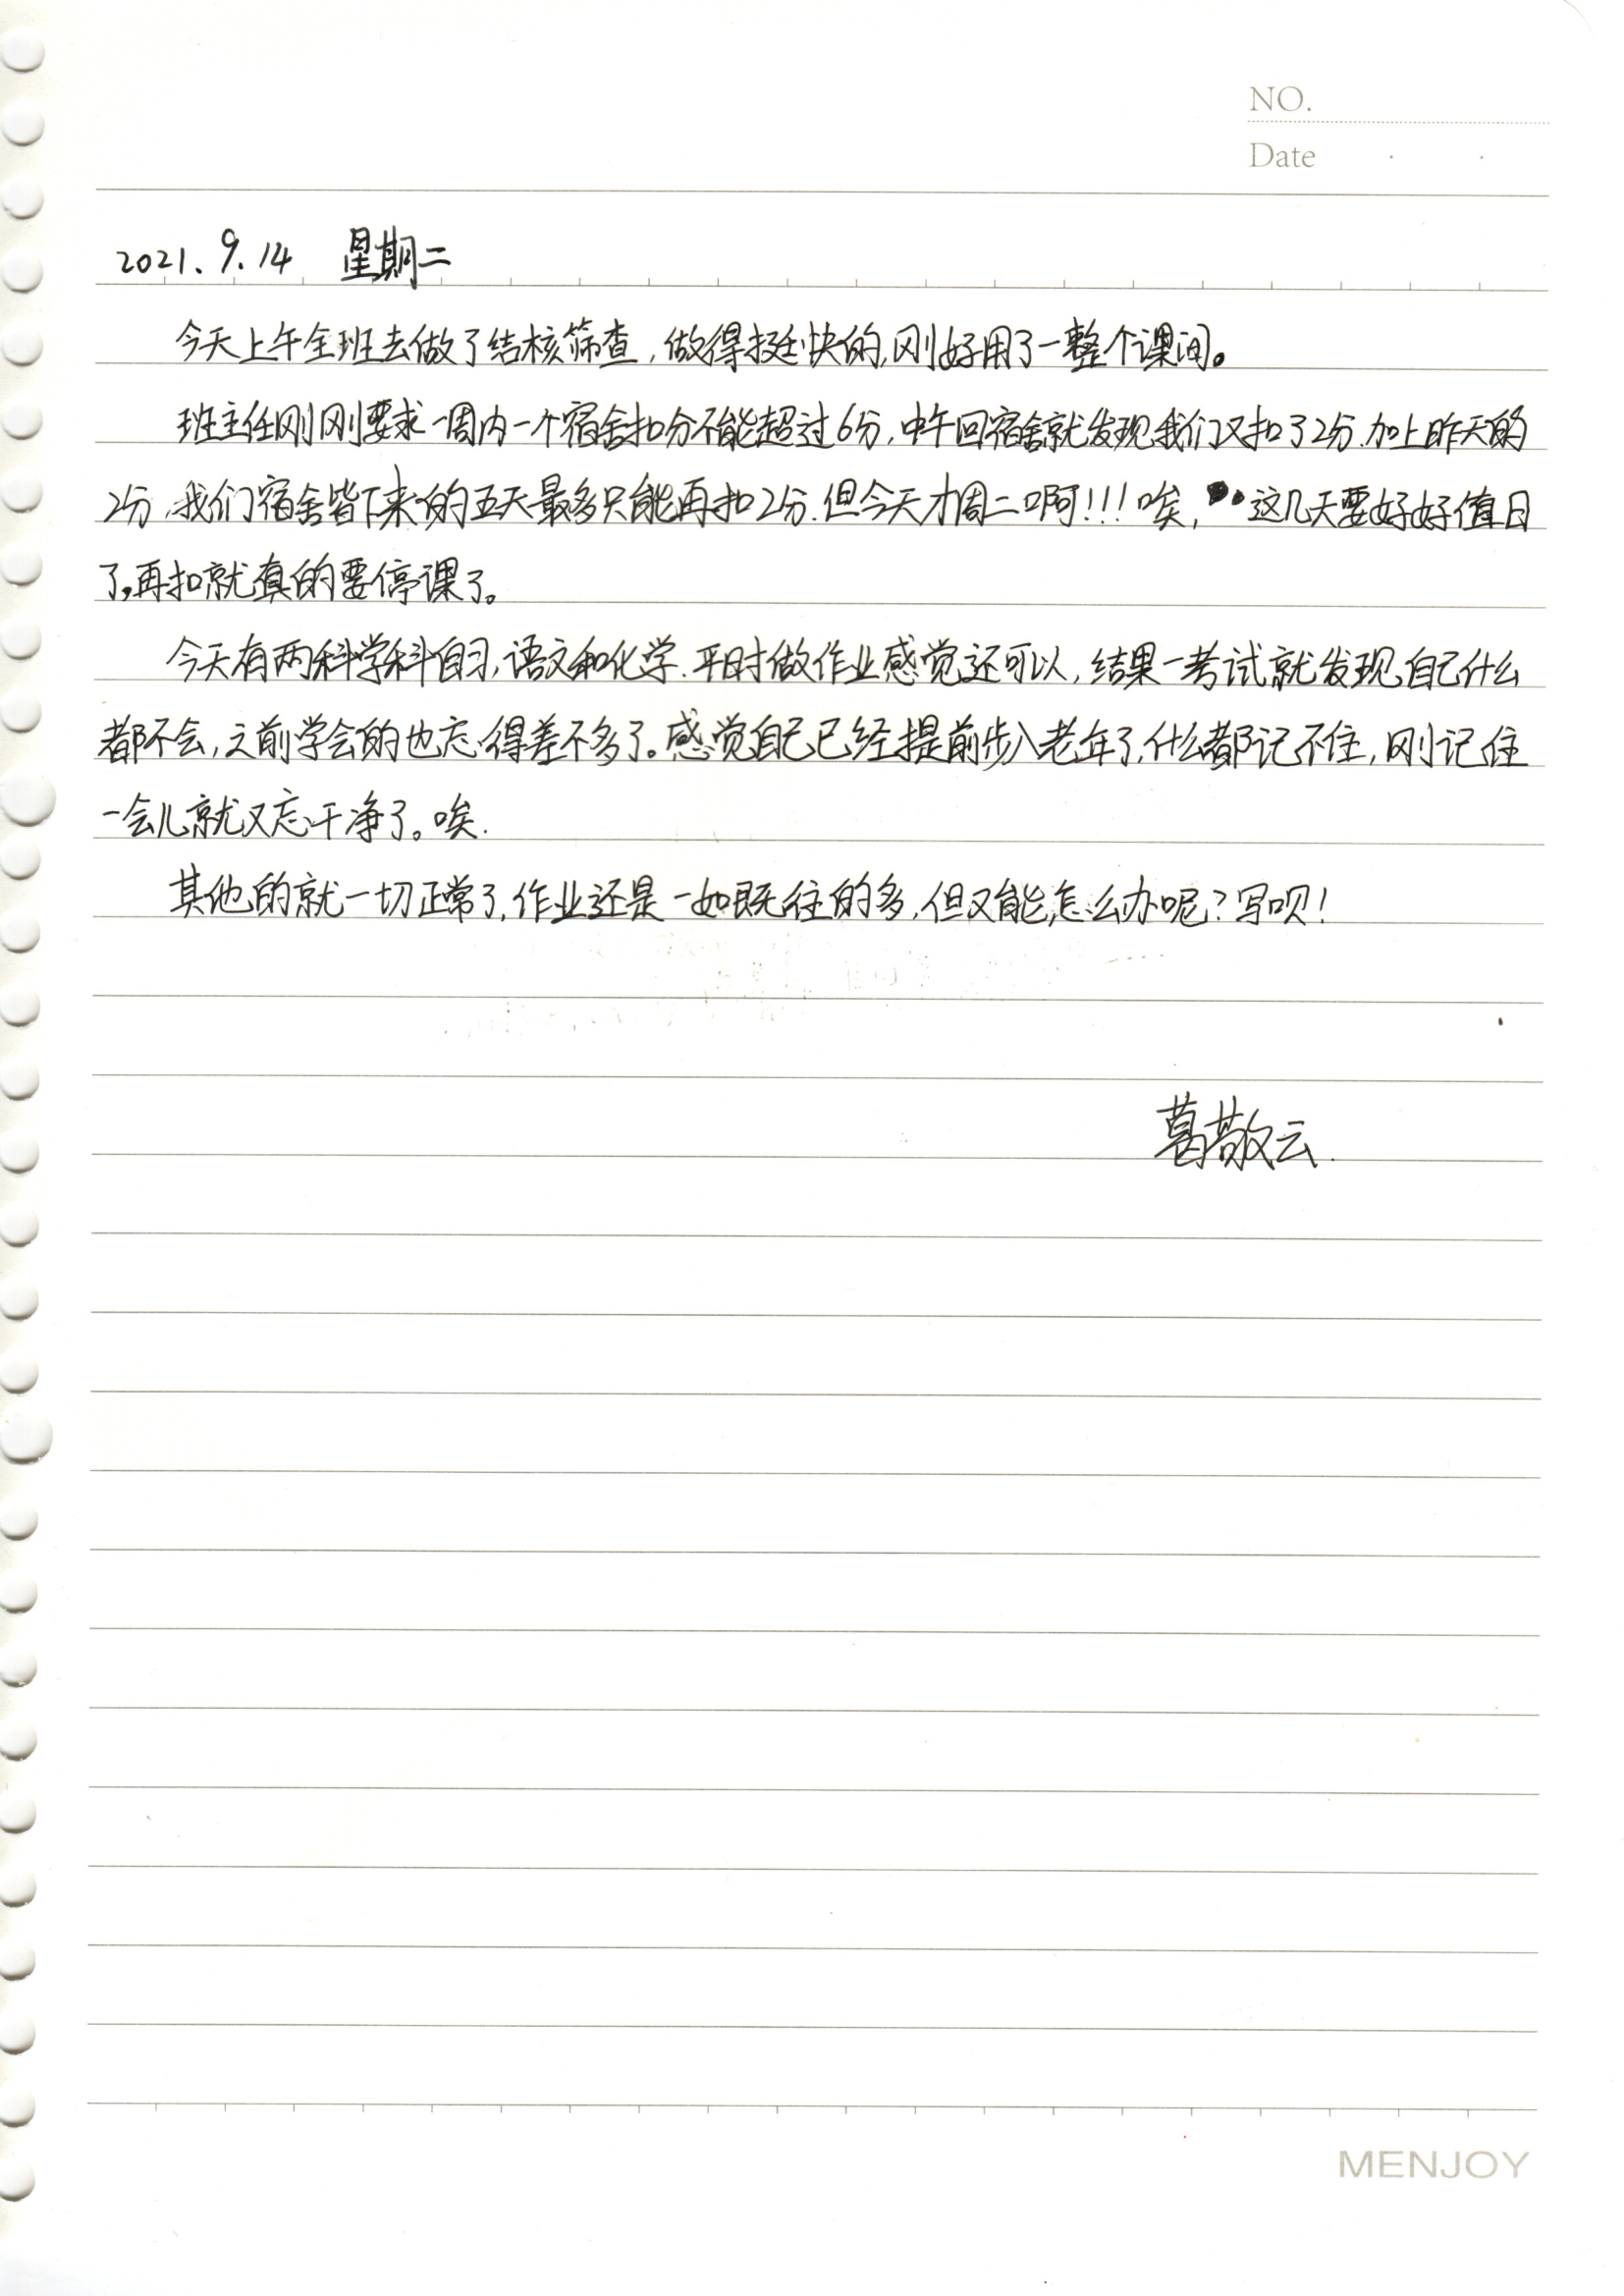 NO.
Date
2021.9.14 星期二
今天上午全班去做了结核筛查,做得挺快的,刚好用了一整个课间。
班主任刚刚要求一周内一个宿舍扣分不能超过6分,中午回宿舍就发现我们又扣了2分.加上昨天的
2分,我们宿舍皆下来的五天最多只能再扣2分.但今天才周二啊!!!唉,这几天要好好值日
了,再扣就真的要停课了。
今天有两科学科自习,语文和化学.平时做作业感觉还可以,结果一考试就发现自己什么
都不会,之前学会的也忘得差不多了。感觉自己已经提前步入老年了,什么都记不住,刚记住
一会儿就又忘干净了。唉.
其他的就一切正常了,作业还是一如既往的多,但又能怎么办呢?写呗!
葛敬云.
MENJOY